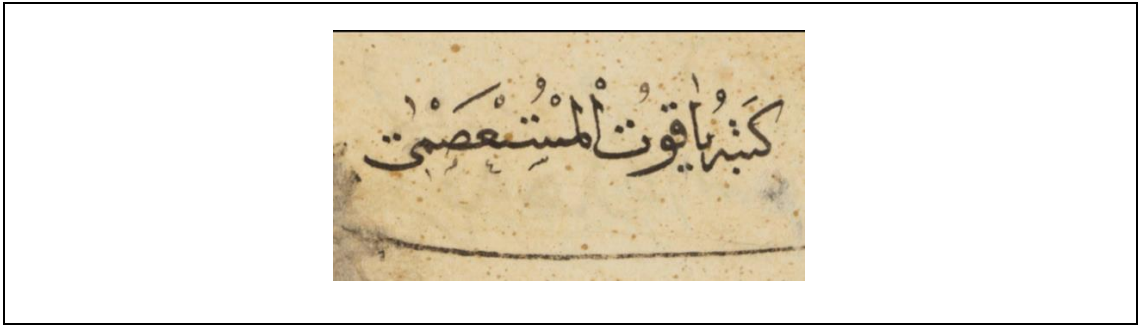 كتبه ياقوت المستعصمي